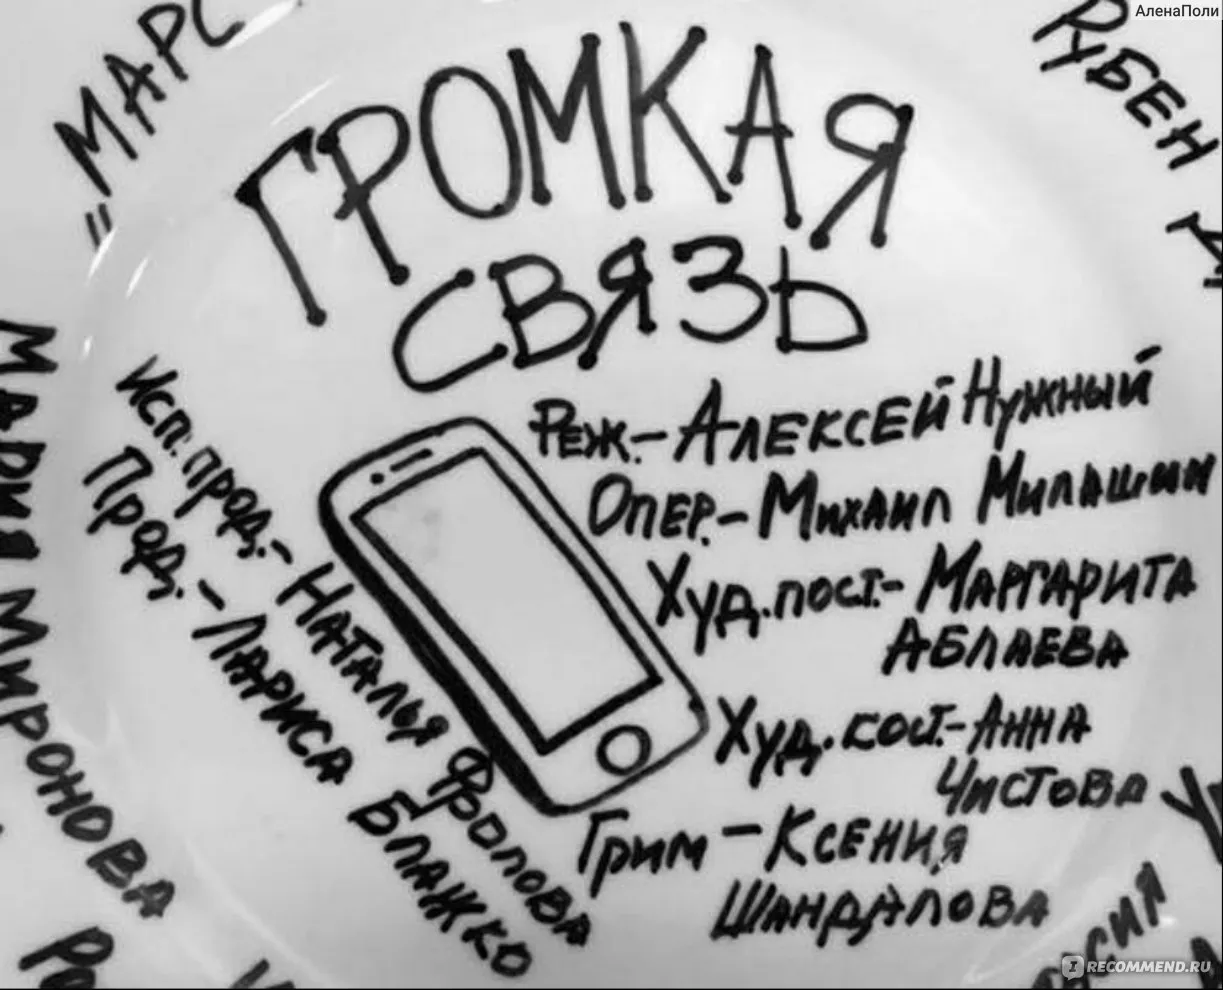 АленаПоли
"МАРС
РУБЕН
ГРОМКАЯ
СВЯЗЬ
Реж.-Алексей Нужный
Опер.-Михаил Милашин
Худ.пост.-Маргарита
Аблаева
Худ.кост.-Анна
Чистова
Грим-Ксения
Шандалова
Исп. прод.-Наталья Фролова
Прод.-Лариса Блажко
МАРИЯ МИРОНОВА
RECOMMEND.RU